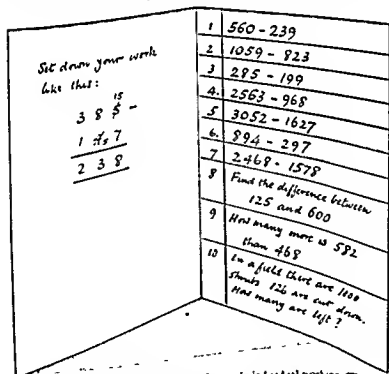 Set down your work
like this:
15
3 8 5 -
1 4 7
2 3 8
1 560 - 239
2 1059 - 823
3 285 - 199
4. 2563 - 968
5 3052 - 1627
6. 894 - 297
7 2468 - 1578
8 Find the difference between
125 and 600
9 How many more is 582
than 468
10 In a field there are 1000
shrubs 126 are cut down.
How many are left?